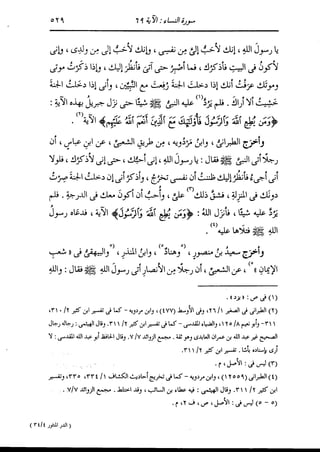 سورة النساء : الآية ٦٩ ٥٢٩
يا رسولَ اللهِ ، إنك لأحبُّ إليَّ من نفسى ، وإنك لأحبُّ إليَّ من ولدى ، وإنى
لأكونُ فى البيتِ فأذكرُك ، فما أصبرُ حتى آتىَ فأنظُرَ إليك ، وإذا ذكَرتُ موتى
وموتَك عرَفتُ أنك إذا دخلتَ الجنةَ رُفِعتَ مع النبيِّين ، وأنى إذا دخلتُ الجنةَ
خشِيتُ ألا أراك . فلم يَرُدَّ(١) عليه النبىُّ ﷺ شيئًا حتى نزَل جبريلُ بهذه الآيةِ :
﴿وَمَن يُطِعِ اللَّهَ وَالرَّسُولَ فَأُولَئِكَ مَعَ الَّذِينَ أَنْعَمَ اللَّهُ عَلَيْهِم﴾ الآية(٢) .
وأخرَج الطبرانىُّ ، وابنُ مَرْدُويَه ، من طريقِ الشعبىِّ ، عن ابنِ عباسٍ ، أن
رجلًا أتى النبىَّ ﷺ فقال : يا رسولَ اللهِ ، إنى أحبُّك ، حتى إنى لأذكرُك ، فلولا
أنى أجىءُ فأنظرُ إليك ظننتُ أن نفسى تخرُجُ ، وأذكرُ أنى إن دخلتُ الجنةَ صِرْتُ
دونَك فى المنزلةِ ، فشقَّ ذلك(٣) علىَّ ، وأُحبُّ أن أكونَ معك فى الدرجةِ . فلم
يَرُدَّ عليه شيئًا ، فأنزَل اللهُ : ﴿وَمَن يُطِعِ اللَّهَ وَالرَّسُولَ﴾ الآية ، فدعاه رسولُ
اللهِ ﷺ فتلاها عليه(٤) .
وأخرَج سعيدُ بنُ منصورٍ ، (٥)وهنادٌ(٥) ، وابنُ المنذرِ ، (٥)والبيهقىُّ فى « شعبِ
الإيمانِ »(٥) ، عن الشعبىِّ ، أن رجلًا من الأنصارِ أتى رسولَ اللهِ ﷺ فقال : واللهِ
(١) فى ص : « يزد » .
(٢) الطبرانى فى الصغير ٢٦/١ ، وفى الأوسط (٤٧٧) ، وابن مردويه - كما فى تفسير ابن كثير ٣١٠/٢ ،
٣١١ - وأبو نعيم ١٢٥/٨ ، والضياء المقدسى - كما فى تفسير ابن كثير ٣١١/٢ . وقال الهيثمى : رجاله رجال
الصحيح غير عبد الله بن عمران العابدى وهو ثقة . مجمع الزوائد ٧/٧ . وقال الحافظ أبو عبد الله المقدسى : لا
أرى بإسناده بأسًا . تفسير ابن كثير ٣١١/٢ .
(٣) ليس فى : الأصل ، م .
(٤) الطبرانى (١٢٥٥٩) ، وابن مردويه - كما فى تخريج أحاديث الكشاف ٣٣٤/١ ، ٣٣٥ ، وتفسير
ابن كثير ٣١١/٢ . وقال الهيثمى : فيه عطاء بن السائب ، وقد اختلط . مجمع الزوائد ٧/٧ .
(٥ - ٥) ليس فى : الأصل ، ص ، ف ٢ ، م .
( الدر المنثور ٣٤/٤ )